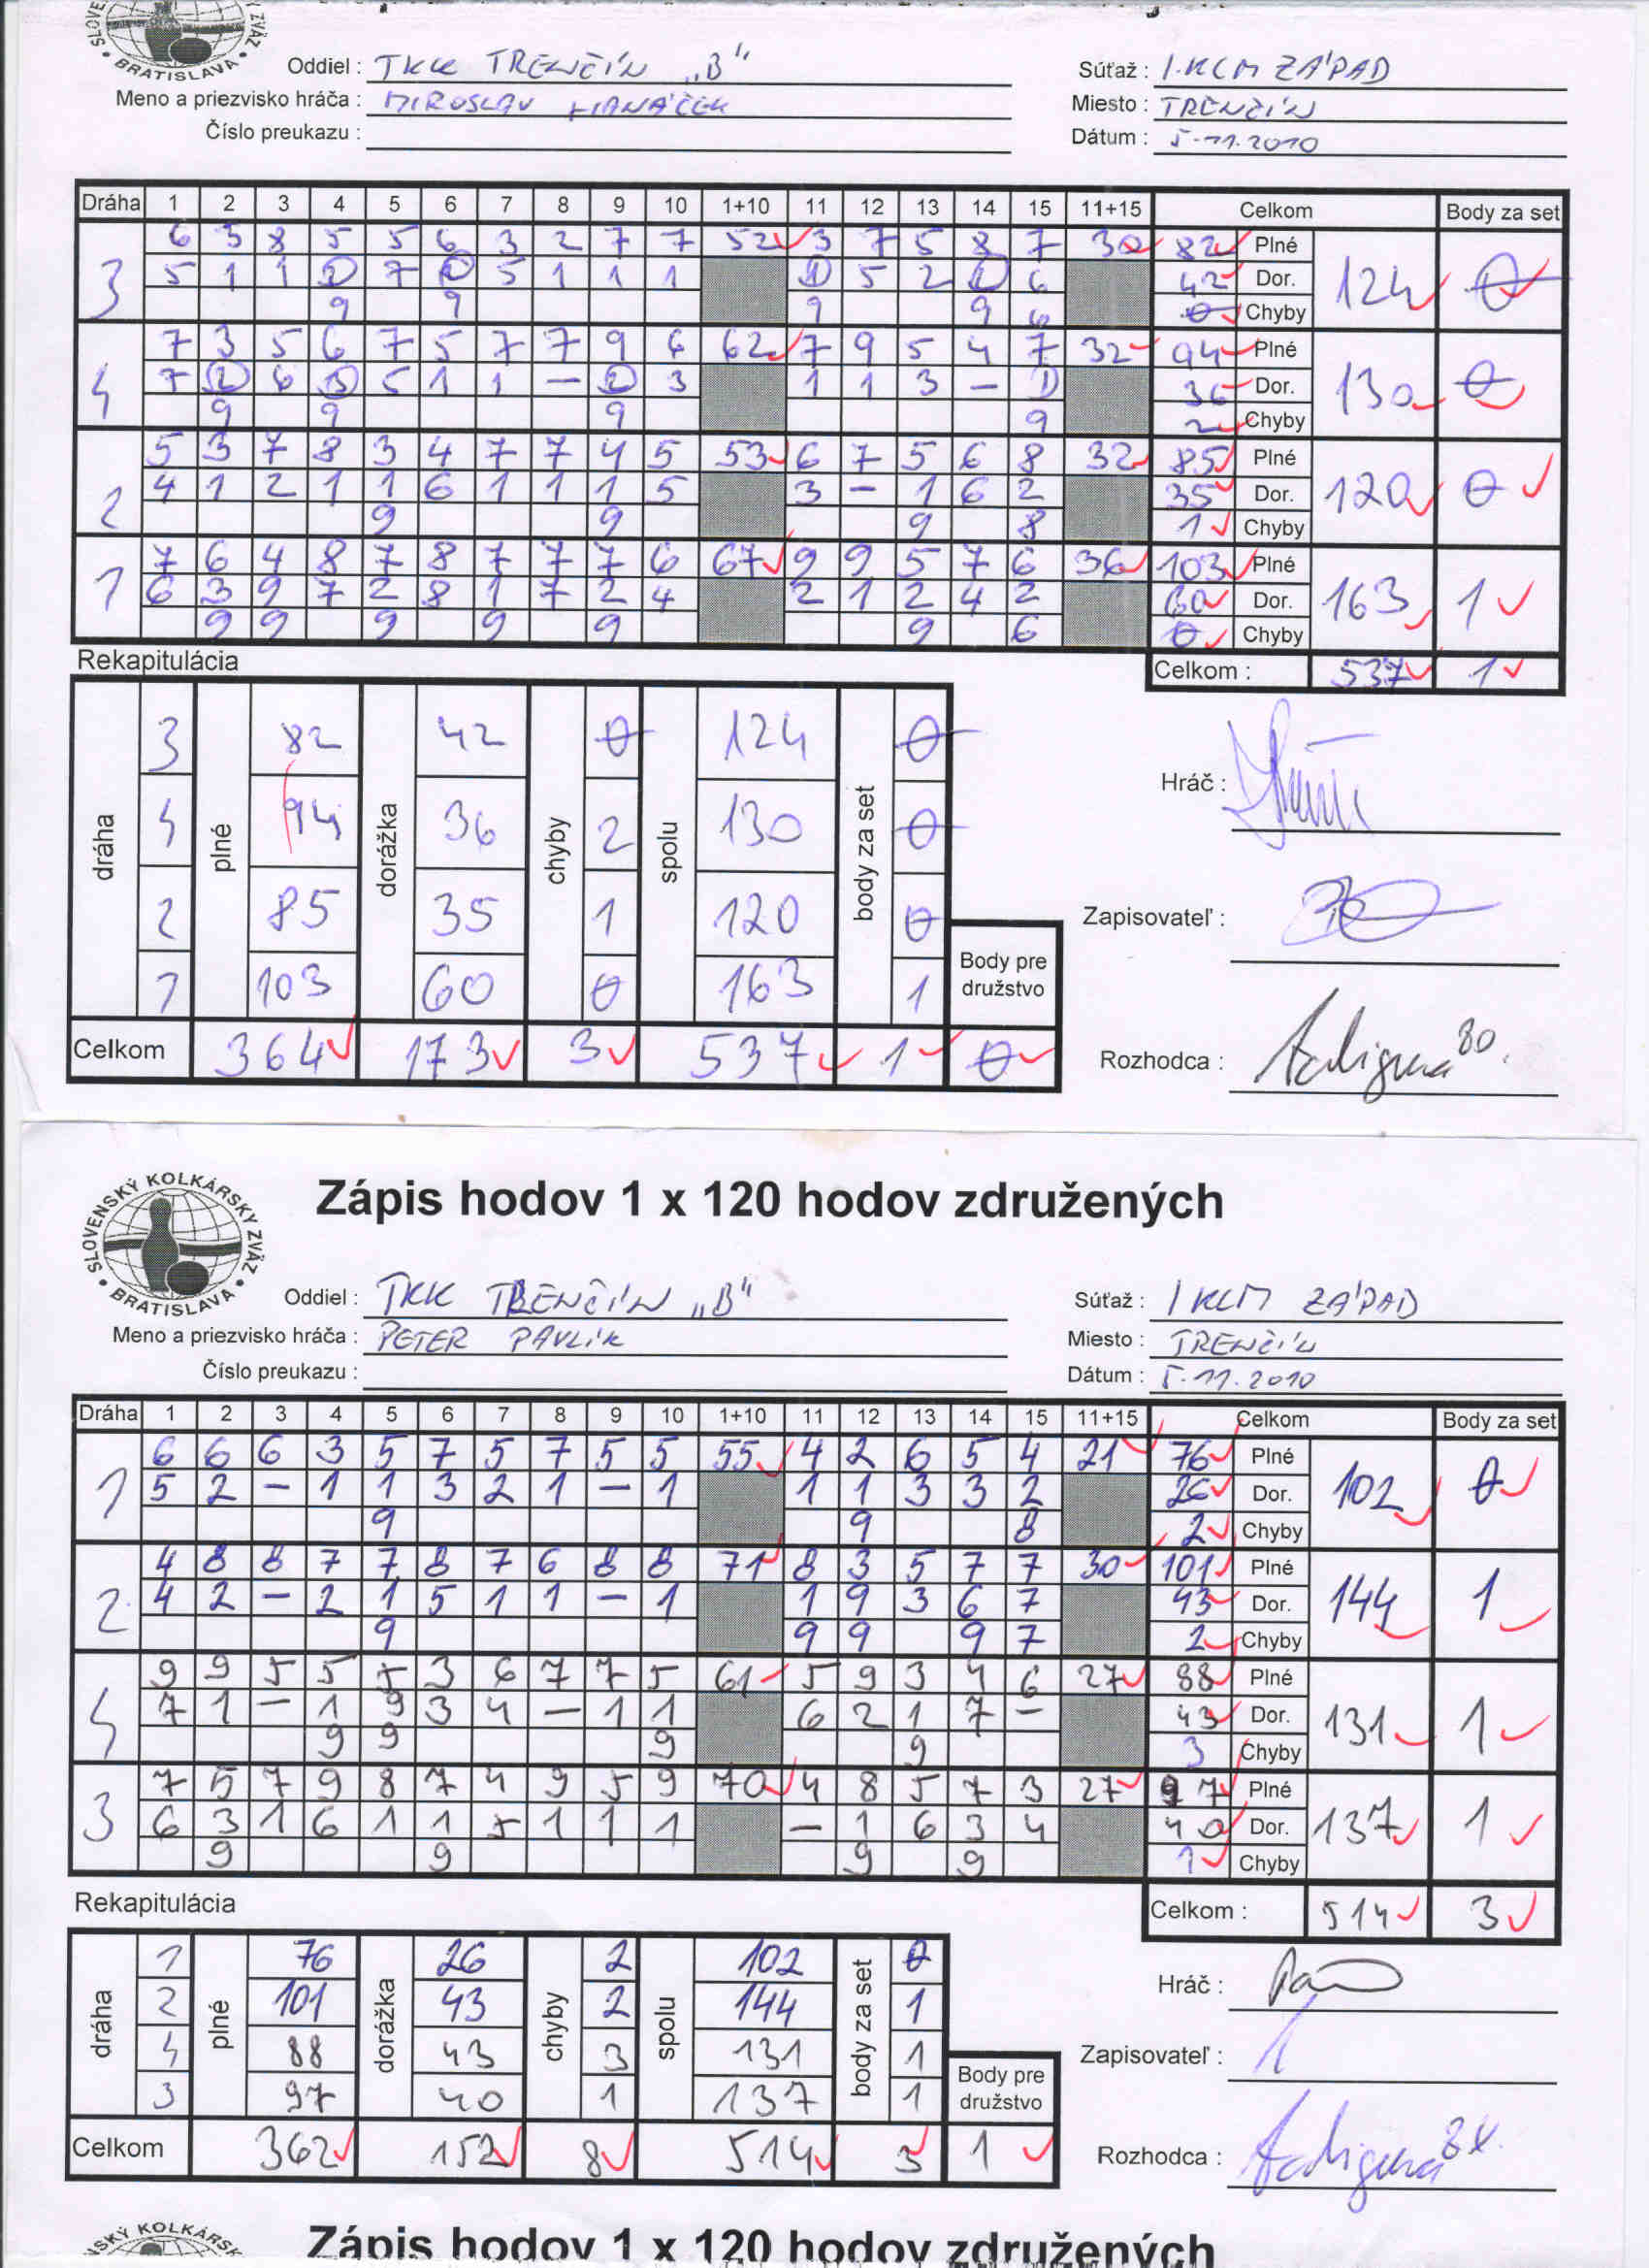 BRATISLAVA
Oddiel : TKK TRENČÍN „B"
Súťaž : I.KLM ZÁPAD
Meno a priezvisko hráča : MIROSLAV HANÁČEK
Miesto : TRENČÍN
Číslo preukazu :
Dátum : 5.11.2010
Dráha 1 2 3 4 5 6 7 8 9 10 1+10 11 12 13 14 15 11+15 Celkom Body za set
6 5 8 5 5 6 3 2 7 7 52 3 7 5 8 7 30 82 Plné
3 5 1 1 1 7 1 5 1 1 1 1 5 2 1 6 42 Dor. 124 0
9 9 9 9 6 0 Chyby
7 3 5 6 7 5 7 7 9 6 62 7 9 5 4 7 32 94 Plné
4 7 2 6 3 5 1 1 – 2 3 1 1 3 – 1 36 Dor. 130 0
9 9 9 9 2 Chyby
5 3 7 8 3 4 7 7 4 5 53 6 7 5 6 8 32 85 Plné
2 4 1 2 1 1 6 1 1 1 5 3 – 1 6 2 35 Dor. 120 0
9 9 9 8 1 Chyby
7 6 4 8 7 8 7 7 7 6 67 9 9 5 7 6 36 103 Plné
1 6 3 9 7 2 8 1 7 2 4 2 1 2 4 2 60 Dor. 163 1
9 9 9 9 9 9 6 0 Chyby
Rekapitulácia
Celkom : 537 1
dráha plné dorážka chyby spolu body za set
3 82 42 0 124 0
4 94 36 2 130 0
2 85 35 1 120 0
1 103 60 0 163 1
Body pre družstvo
Celkom 364 173 3 537 1 0
Hráč :
Zapisovateľ :
Rozhodca :
SLOVENSKÝ KOLKÁRSKY ZVÄZ
BRATISLAVA
Zápis hodov 1 x 120 hodov združených
Oddiel : TKK TRENČÍN „B"
Súťaž : I KLM ZÁPAD
Meno a priezvisko hráča : PETER PAVLÍK
Miesto : TRENČÍN
Číslo preukazu :
Dátum : 5.11.2010
Dráha 1 2 3 4 5 6 7 8 9 10 1+10 11 12 13 14 15 11+15 Celkom Body za set
6 6 6 3 5 7 5 7 5 5 55 4 2 6 5 4 21 76 Plné
1 5 2 – 1 1 3 2 1 – 1 1 1 3 3 2 26 Dor. 102 0
9 9 8 2 Chyby
4 8 8 7 7 8 7 6 8 8 71 8 3 5 7 7 30 101 Plné
2 4 2 – 2 1 5 1 1 – 1 1 9 3 6 7 43 Dor. 144 1
9 9 9 9 7 2 Chyby
9 9 5 5 5 3 6 7 7 5 61 5 9 3 4 6 27 88 Plné
4 7 1 – 1 9 3 4 – 1 1 6 2 1 7 – 43 Dor. 131 1
9 9 9 9 3 Chyby
7 5 7 9 8 7 4 9 5 9 70 4 8 5 7 3 27 97 Plné
3 6 3 1 6 1 1 5 1 1 1 – 1 6 3 4 40 Dor. 137 1
9 9 9 9 1 Chyby
Rekapitulácia
Celkom : 514 3
dráha plné dorážka chyby spolu body za set
1 76 26 2 102 0
2 101 43 2 144 1
4 88 43 3 131 1
3 97 40 1 137 1
Body pre družstvo
Celkom 362 152 8 514 3 1
Hráč :
Zapisovateľ :
Rozhodca :
Zápis hodov 1 x 120 hodov združených